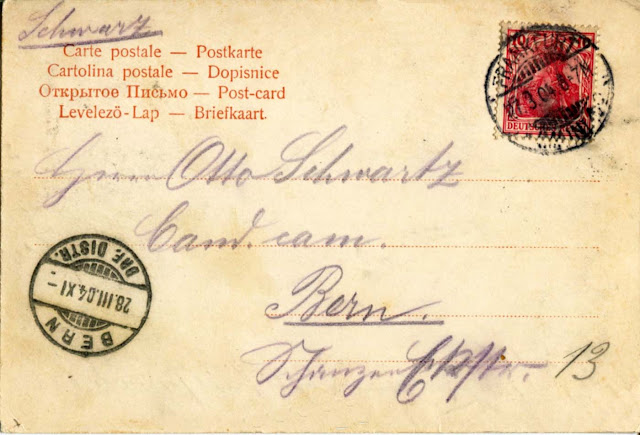 Schwarz
Carte postale — Postkarte
Cartolina postale — Dopisnice
Открытое Письмо — Post-card
Levelező-Lap — Briefkaart.
FRANKFURT
27.3.04
DEUTSCHES
Herrn Otto Schwartz
Cand. cam.
Bern.
13
BERN
28.III.04.XI-
BRF. DISTR.